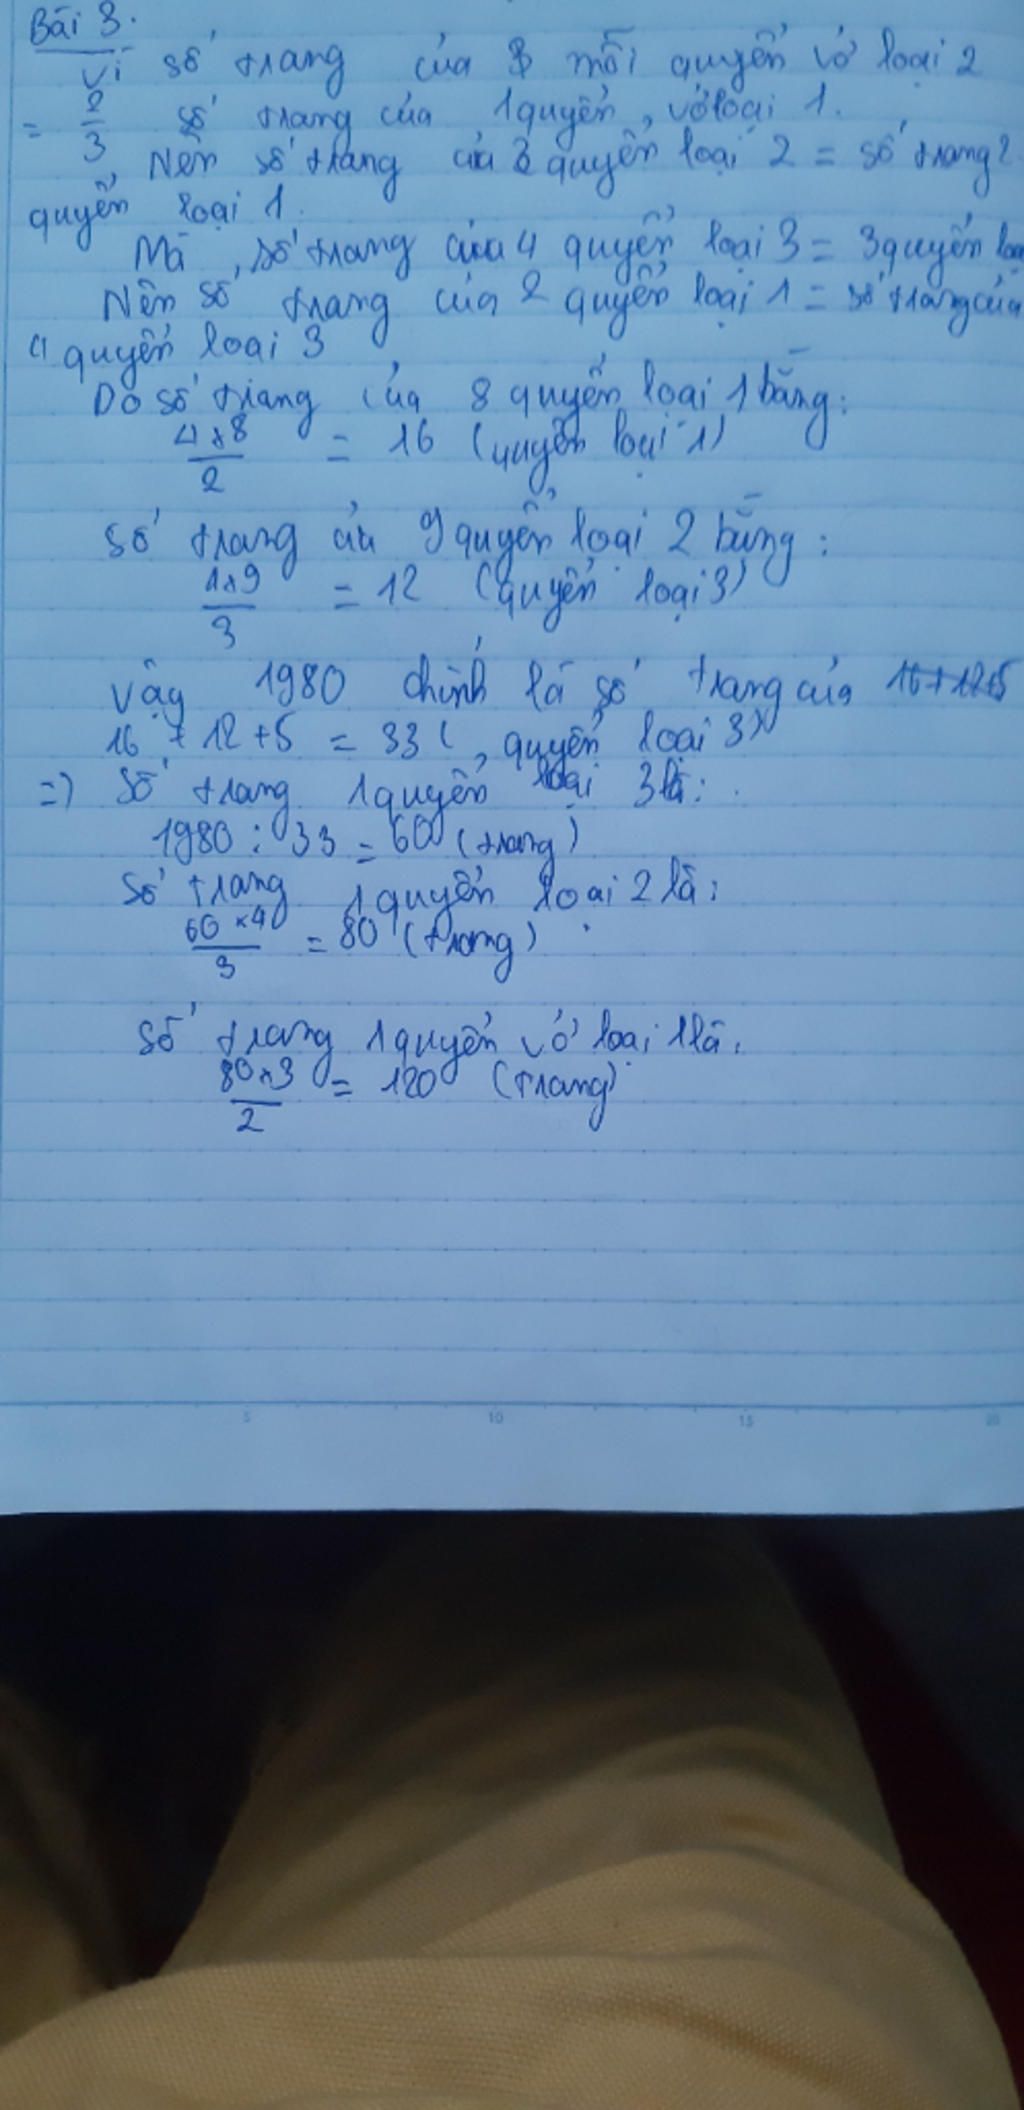 Bài 3.
Vì số trang của mỗi quyển vở loại 2
= 2/3 số trang của 1 quyển vở loại 1.
Nên số trang của 3 quyển loại 2 = số trang 2
quyển loại 1.
Mà số trang của 4 quyển loại 3 = 3 quyển loại
Nên số trang của 2 quyển loại 1 = số trang của
4 quyển loại 3
Do số trang của 8 quyển loại 1 bằng:
4 x 8 / 2 = 16 (quyển loại 1)
Số trang của 9 quyển loại 2 bằng:
4 x 9 / 3 = 12 (quyển loại 3)
Vậy 1980 chính là số trang của 16 + 12 + 5
16 + 12 + 5 = 33 (quyển loại 3)
=> Số trang 1 quyển loại 3 là:
1980 : 33 = 60 (trang)
Số trang 1 quyển loại 2 là:
60 x 4 / 3 = 80 (trang)
Số trang 1 quyển vở loại 1 là:
80 x 3 / 2 = 120 (trang)
5 10 15 20